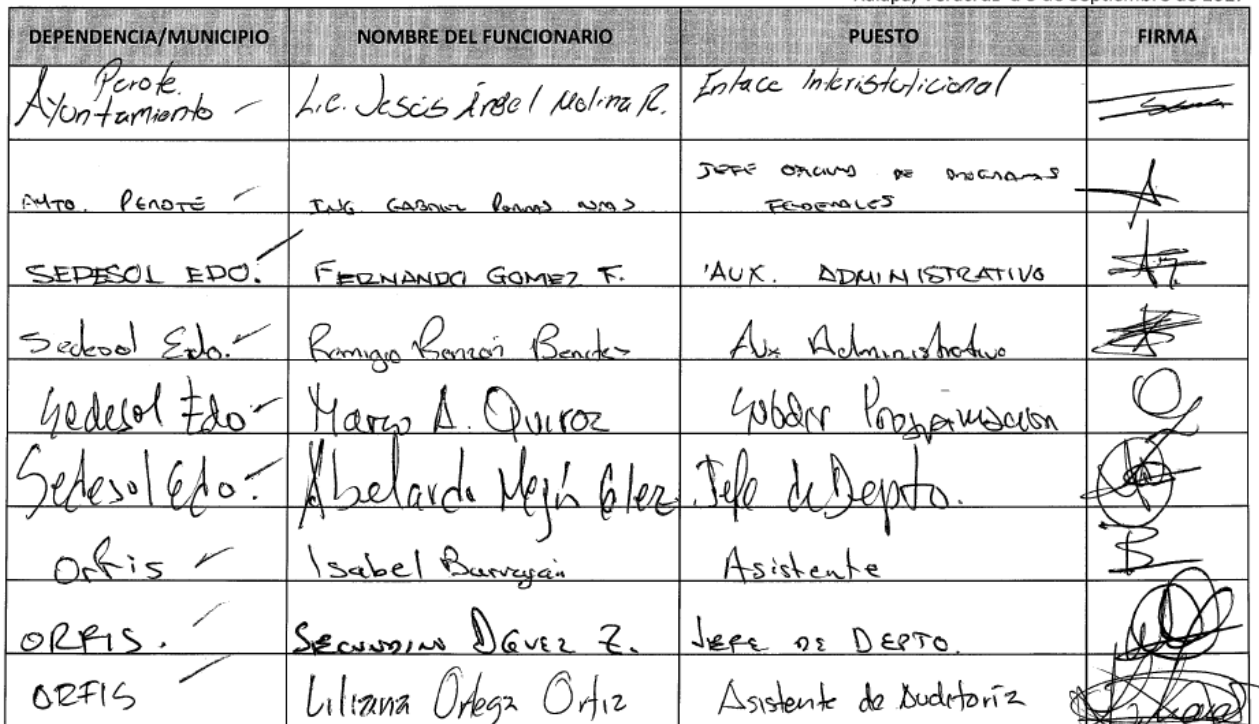 DEPENDENCIA/MUNICIPIO NOMBRE DEL FUNCIONARIO PUESTO FIRMA
Perote.
Ayuntamiento L.c. Jesús Ángel Molina R. Enlace Interistuticional
JEFE DE PROGRAMAS
AYTO. PEROTE ING FEDERALES
SEDESOL EDO. FERNANDO GOMEZ F. AUX. ADMINISTRATIVO
Sedesol Edo. Remigio Benites Aux Administrativo
Sedesol Edo Marco A. Quiroz Subdir Programacion
Sedesol Edo. Abelardo Mejía Glez Jefe de Depto.
Orfis Isabel Barragán Asistente
ORFIS. SECUNDINO Z. JEFE DE DEPTO.
ORFIS Liliana Ortega Ortiz Asistente de Auditoría